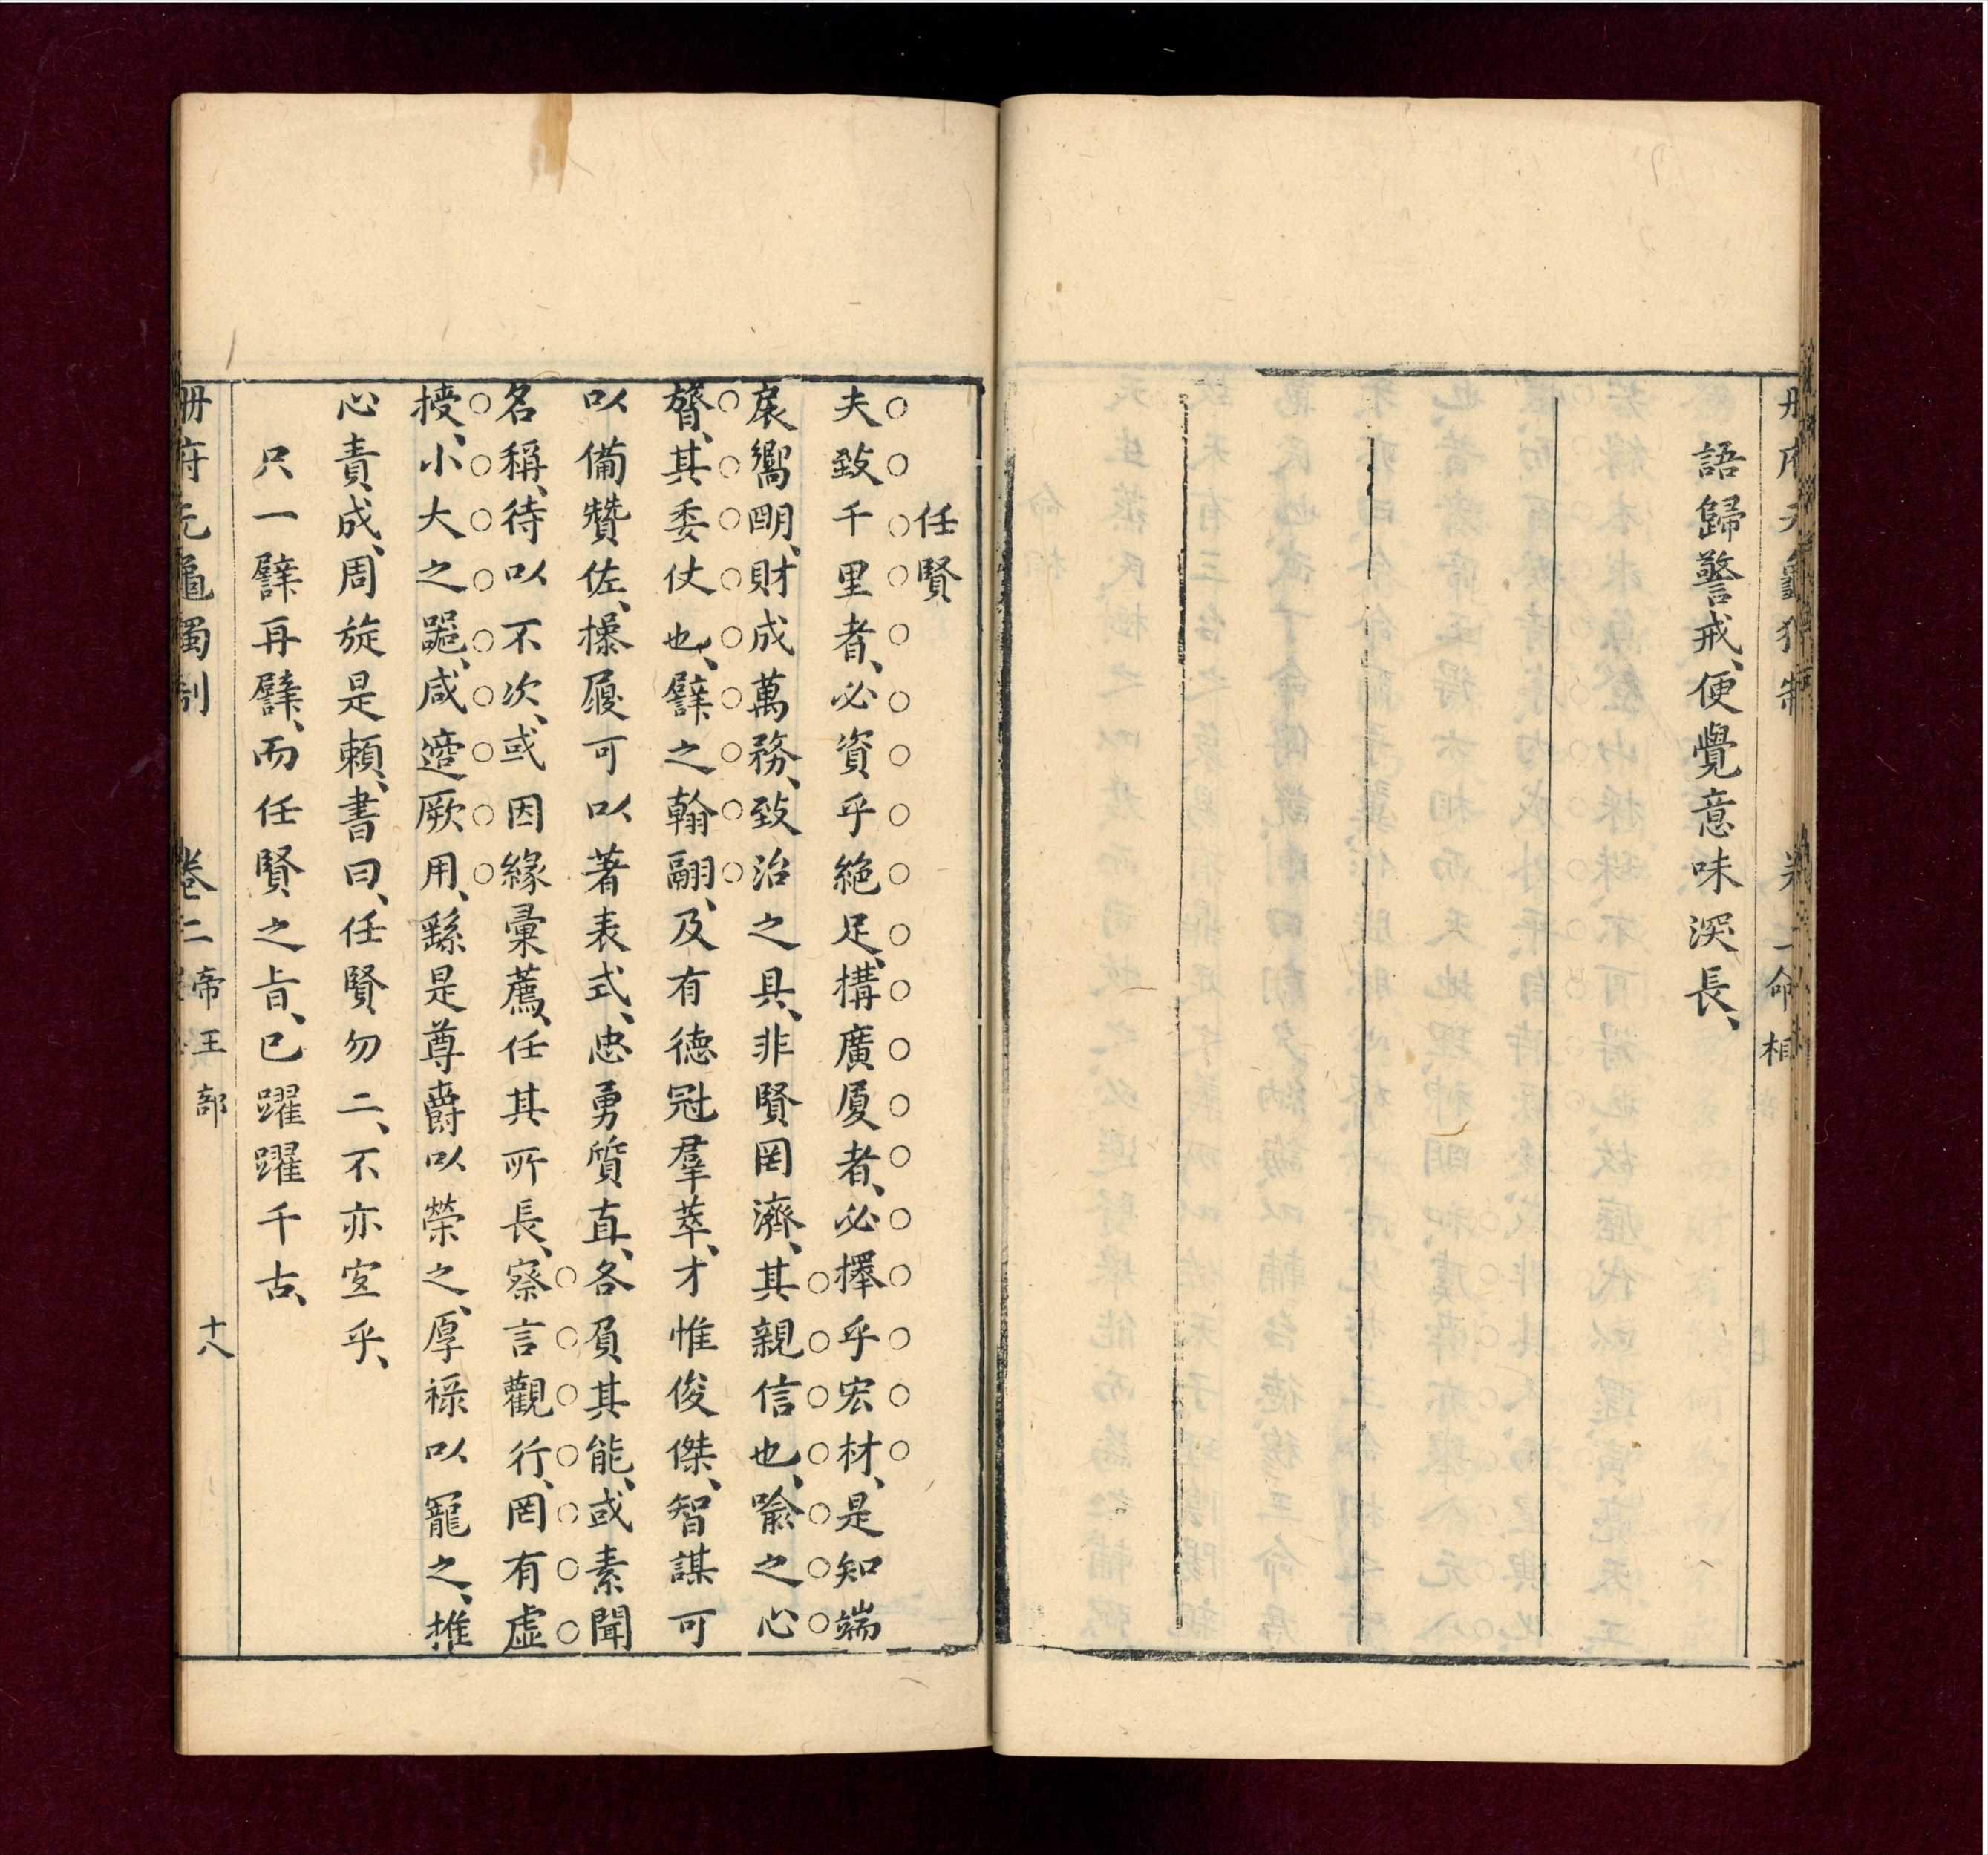 語歸警戒、便覺意味深長、
命相
任賢
夫致千里者、必資乎絶足、構廣厦者、必擇乎宏材、是知端
扆嚮明、財成萬務、致治之具、非賢罔濟、其親信也、喻之心
膂、其委仗也、譬之翰翮、及有德冠羣萃、才惟俊傑、智謀可
以備贊佐、操履可以著表式、忠勇質直、各負其能、或素聞
名稱、待以不次、或因緣彙薦、任其所長、察言觀行、罔有虛
授、小大之噐、咸適厥用、繇是尊爵以榮之、厚祿以寵之、推
心責成、周旋是賴、書曰、任賢勿二、不亦宜乎、
只一譬再譬、而任賢之旨、已躍躍千古、
冊府元龜獨制 卷二 帝王部 十八